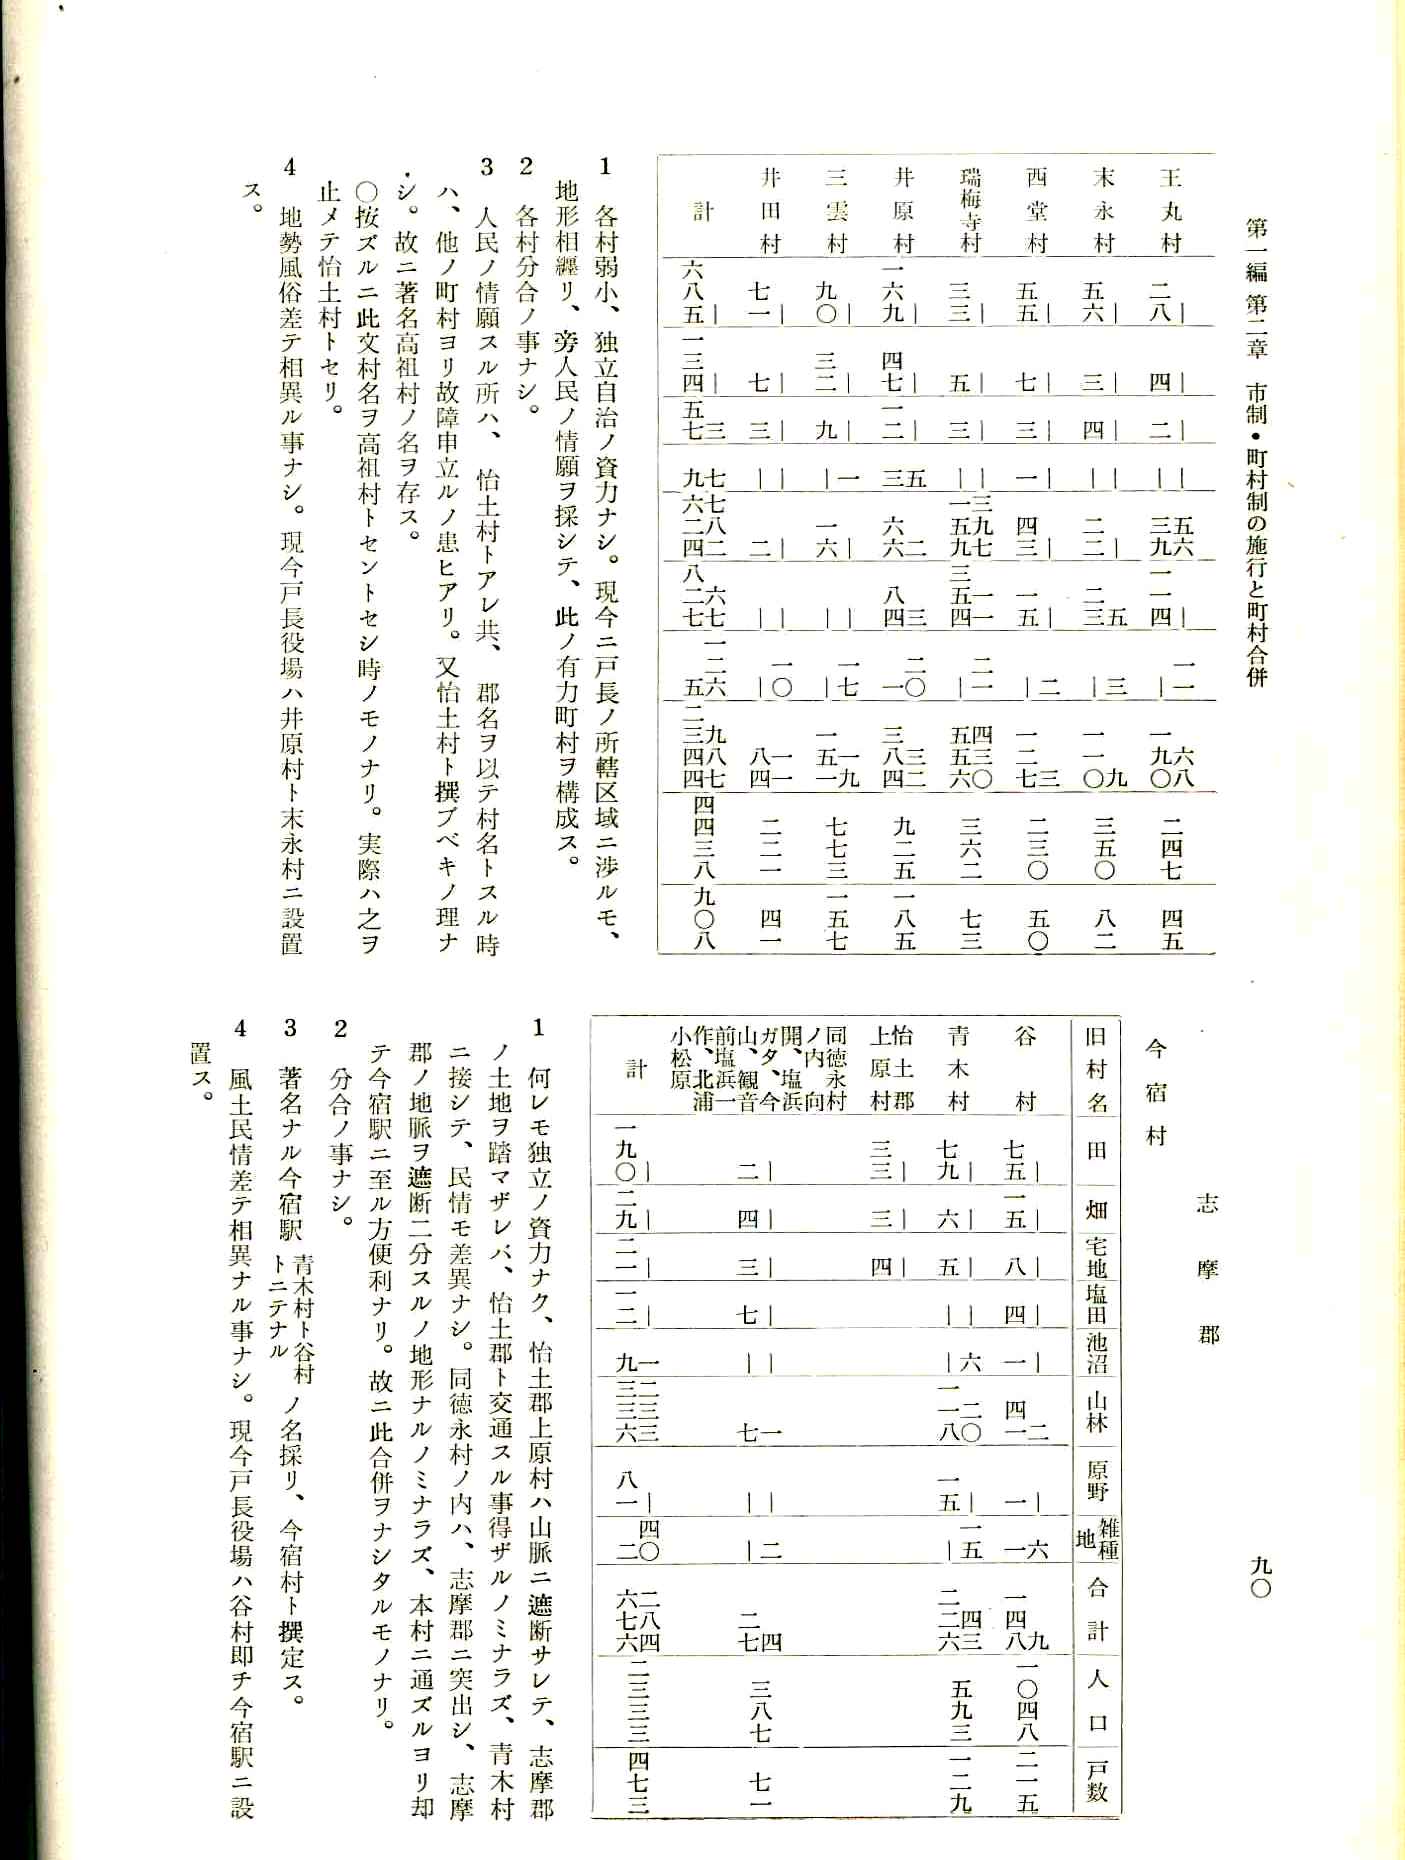 第一編 第二章 市制・町村制の施行と町村合併
九〇
王丸村 |二八 |四 |二 || 五六 三九 |一一四 一一| 六八 一九〇 二四七 四五
末永村 |五六 |三 |四 || |二二 五 二三 三| 九 一一〇 三五〇 八二
西堂村 |五五 |七 |三 |一 |四三 |一五 二| 三 一二七 二三〇 五〇
瑞梅寺村 |三三 |五 |三 || 三九七 一五九 一一 三五四 二一| 四三〇 五五六 三六二 七三
井原村 |一六九 |四七 |一二 五 三 二 六六 三 八四 二〇 一 三二 三八四 九二五 一八五
三雲村 |九〇 |三二 |九 一| |一六 || 一七| 一九 一五一 七七三 一五七
井田村 |七一 |七 |三 || |二 || 一〇| 一一 八四 二二一 四一
計 |六八五 |一三四 三 五七 七 九 七八二 六二四 六七 八二七 一二六 五 九八七 二三四四 四四三八 九〇八
1 各村弱小、独立自治ノ資力ナシ。現今ニ戸長ノ所轄区域ニ渉ルモ、
地形相纒リ、旁人民ノ情願ヲ採シテ、此ノ有力町村ヲ構成ス。
2 各村分合ノ事ナシ。
3 人民ノ情願スル所ハ、怡土村トアレ共、郡名ヲ以テ村名トスル時
ハ、他ノ町村ヨリ故障申立ルノ患ヒアリ。又怡土村ト撰ブベキノ理ナ
シ。故ニ著名高祖村ノ名ヲ存ス。
〇按ズルニ此文村名ヲ高祖村トセントセシ時ノモノナリ。実際ハ之ヲ
止メテ怡土村トセリ。
4 地勢風俗差テ相異ル事ナシ。現今戸長役場ハ井原村ト末永村ニ設置
ス。
志摩郡
今宿村
旧村名 田 畑 宅地 塩田 池沼 山林 原野 雑種地 合計 人口 戸数
谷村 |七五 |一五 |八 |四 |一 二 四一 |一 六 一 九 一四八 一〇四八 二一五
青木村 |七九 |六 |五 || 六| 二〇 一一八 |一五 一五| 四三 二二六 五九三 一二九
怡土郡上原村 |三三 |三 |四
同徳永村ノ内向開、塩浜ガタ、今山、観音前塩浜一作、北浦小松原 |二 |四 |三 |七 || 一 七 || 二| 四 二七 三八七 七一
計 |一九〇 |二九 |二一 |一二 一 九 二三三 三三六 |八一 四〇 二 二八四 六七六 二三三三 四七三
1 何レモ独立ノ資力ナク、怡土郡上原村ハ山脈ニ遮断サレテ、志摩郡
ノ土地ヲ踏マザレバ、怡土郡ト交通スル事得ザルノミナラズ、青木村
ニ接シテ、民情モ差異ナシ。同徳永村ノ内ハ、志摩郡ニ突出シ、志摩
郡ノ地脈ヲ遮断二分スルノ地形ナルノミナラズ、本村ニ通ズルヨリ却
テ今宿駅ニ至ル方便利ナリ。故ニ此合併ヲナシタルモノナリ。
2 分合ノ事ナシ。
3 著名ナル今宿駅 青木村ト谷村トニテナル ノ名採リ、今宿村ト撰定ス。
4 風土民情差テ相異ナル事ナシ。現今戸長役場ハ谷村即チ今宿駅ニ設
置ス。